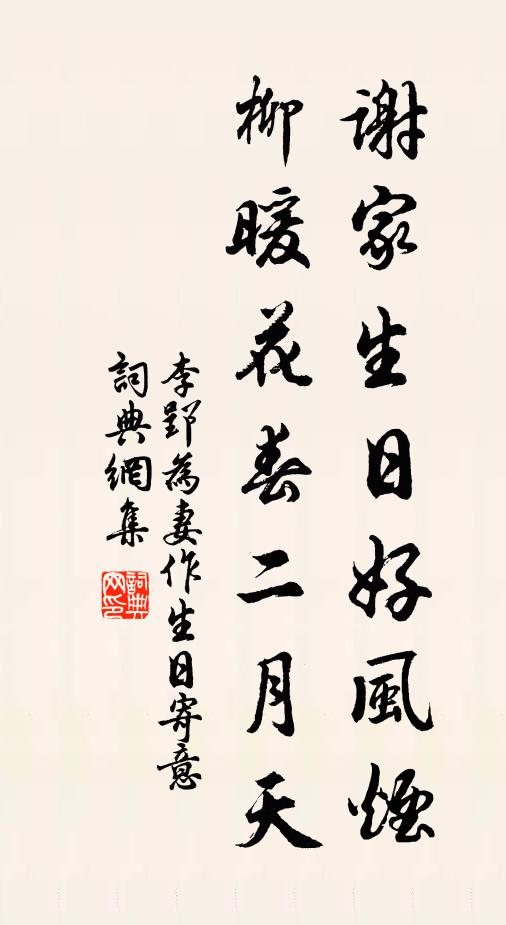 謝家生日好風煙
柳暖花春二月天
李郢為妻作生日寄意
詞典網集
詞典网印